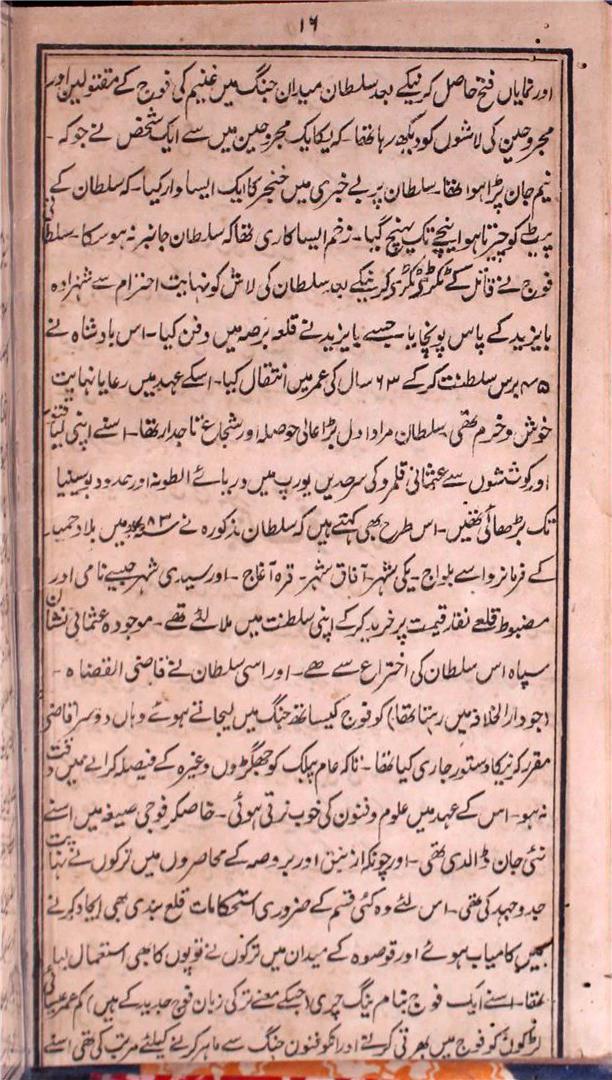 ۱۶
اور نمایاں فتح حاصل کرنیکے بعد سلطان میدان جنگ میں غنیم کی فوج کے مقتولین اور
مجروحین کی لاشوں کو دیکھ رہا تھا - کہ یکایک مجروحین میں سے ایک شخص نے جو کہ -
نیم جان پڑا ہوا تھا - سلطان پر بے خبری میں خنجر کا ایک ایسا وار کیا - کہ سلطان کے
پیٹ کو چیرتا ہوا نیچے تک پہنچ گیا - زخم ایسا کاری تھا کہ سلطان جانبر نہ ہو سکا - سلطانی
فوج نے قاتل کے ٹکڑے ٹکڑے کرنیکے بعد سلطان کی لاش کو نہایت احترام سے شہزادہ
بایزید کے پاس پونچایا - جسے بایزید نے قلعہ برصہ میں دفن کیا - اس بادشاہ نے
برس سلطنت کر کے ۶۳ سال کی عمر میں انتقال کیا - اسکے عہد میں رعایا نہایت
خوش و خرم تھی سلطان مراد اول بڑا عالی حوصلہ اور شجاع تاجدار تھا - اسنے اپنی لیاقت
اور کوششوں سے عثمانی قلمرو کی سرحدیں یورپ میں دریائے الطونہ اور حدود بوسینیا
تک بڑھائی تھیں - اس طرح بھی کہتے ہیں کہ سلطان مذکورہ نے میں بلاد حمید
کے فرمانروا سے بلواج - یکی شہر - آفاق شہر - قرہ آغاج - اور سیدی شہر جیسے نامی اور
مضبوط قلعے نقد قیمت پر خرید کر کے اپنی سلطنت میں ملا لئے تھے - موجودہ عثمانی نشان
سپاہ اس سلطان کی اختراع سے ہے - اور اسی سلطان نے قاضی القضاہ -
(جو دار الخلافہ میں رہتا تھا) کو فوج کیساتھ جنگ میں لیجاتے ہوئے وہاں دوسرا قاضی
مقرر کرنیکا دستور جاری کیا تھا - تاکہ عام پبلک کو جھگڑوں وغیرہ کے فیصلہ کرانے میں دقت
نہ ہو - اس کے عہد میں علوم و فنون کی خوب ترقی ہوئی - خاصکر فوجی صیغہ میں اسنے
نئی جان ڈالدی تھی - اور چونکہ ازنیق اور بروصہ کے محاصروں میں ترکوں نے نہایت
جد و جہد کی تھی - اس لئے وہ کئی قسم کے ضروری استحکامات قلع بندی بھی ایجاد کرنے
میں کامیاب ہوئے اور قوصوہ کے میدان میں ترکوں نے توپوں کا بھی استعمال کیا
تھا - اسنے ایک فوج بنام ینگ چری (جسکے معنے ترکی زبان میں فوج جدید کے ہیں) کم عمر عیسائی
لڑکوں کو فوج میں بھرتی کرتے اور انکو فنون جنگ سے ماہر کرنے کیلئے مرتب کی تھی اسنے